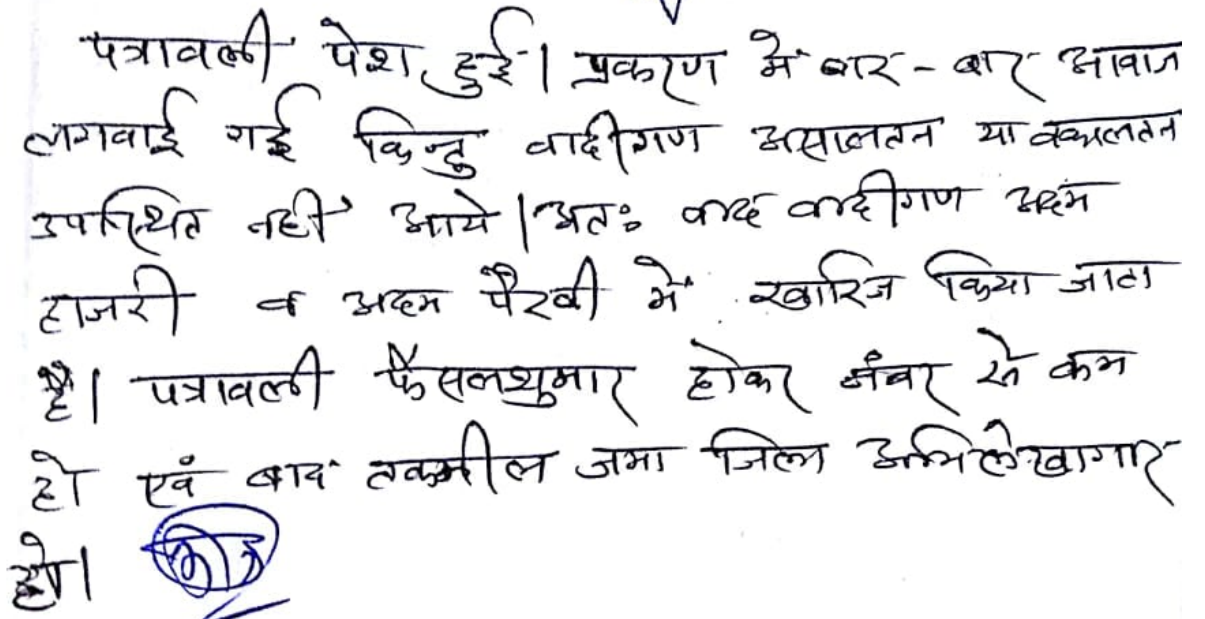 पत्रावली पेश हुई। प्रकरण में बार-बार आवाज
लगवाई गई किन्तु वादीगण असालतन या वकालतन
उपस्थित नहीं आये। अतः वाद वादीगण अदम
हाजरी व अदम पैरवी में खारिज किया जाता
है। पत्रावली फैसलशुमार होकर नंबर से कम
हो एवं बाद तकमील जमा जिला अभिलेखागार
हो।